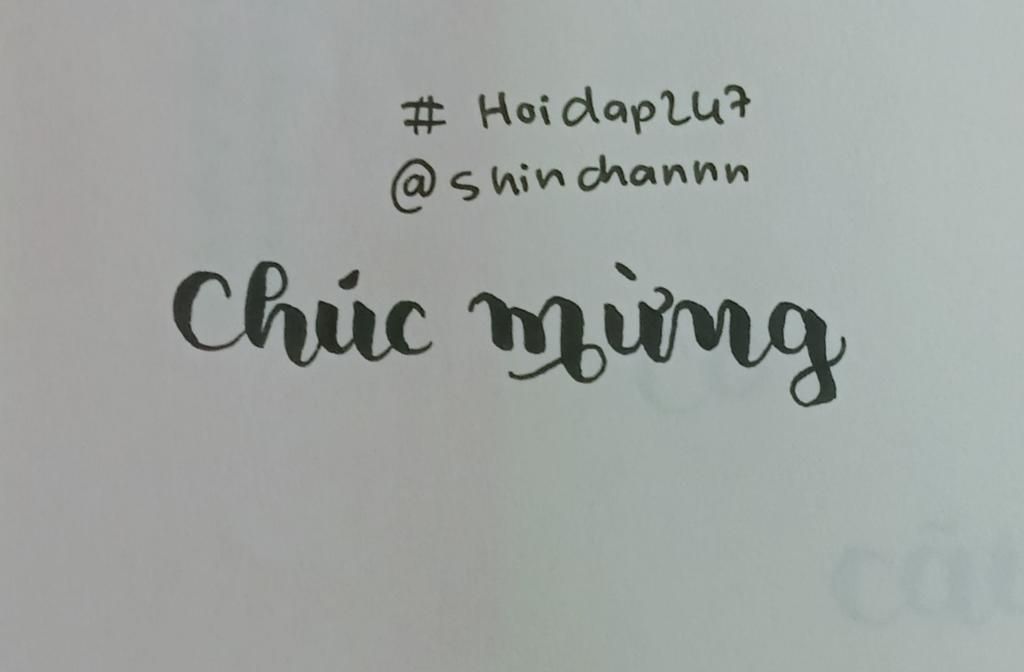 # Hoidap247
@shinchannn
Chúc mừng